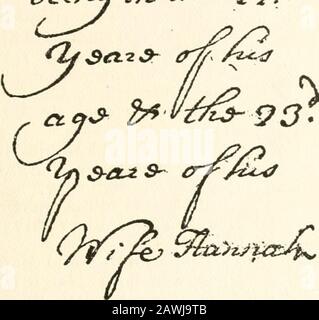 being in
Yeare of his
age & the 23.d
Yeare of his
Wife Hannah
alamy
Image ID: 2AWJ9TB
www.alamy.com